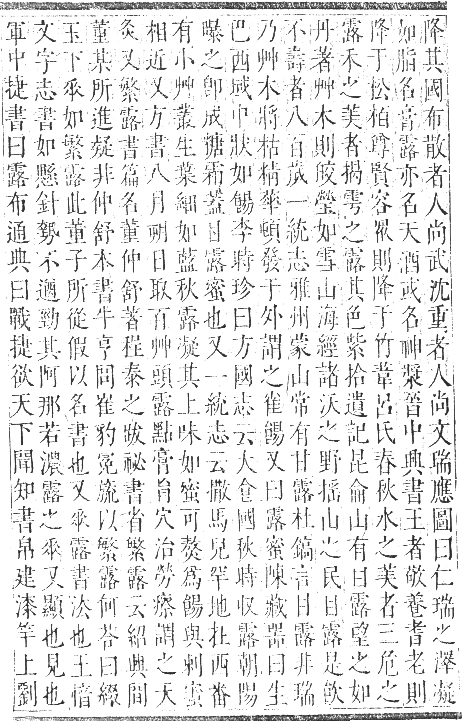 降其國布散者人尚武沈重者人尚文瑞應圖曰仁瑞之澤凝
如脂名膏露亦名天酒或名神漿晉中興書王者敬養耆老則
降于松栢尊賢容衆則降于竹葦呂氏春秋水之美者三危之
露禾之美者揭雩之露其色紫拾遺記昆侖山有甘露望之如
丹著艸木則皎瑩如雪山海經諸沃之野搖山之民甘露是飮
不壽者八百歲一統志雅州蒙山常有甘露杜鎬言甘露非瑞
乃艸木將枯精華頓發于外謂之雀餳又曰露蜜陳藏器曰生
巴西域中狀如餳李時珍曰方國志云大食國秋時收露朝陽
曝之卽成糖霜蓋甘露蜜也又一統志云撒馬兒罕地在西番
有小艸叢生葉細如藍秋露凝其上味如蜜可熬爲餳與刺蜜
相近又方書八月朔日取百艸頭露點膏肓穴治勞瘵謂之天
灸又繁露書篇名董仲舒著程泰之跋祕書省繁露云紹興間
董某所進疑非仲舒本書牛亨問崔豹冕旒以繁露何荅曰綴
玉下垂如繁露此董子所從假以名書也又垂露書法也王愔
文字志書如懸針勢不遒勁其阿那若濃露之垂又顯也見也
軍中捷書曰露布通典曰戰捷欲天下聞知書帛建漆竿上劉